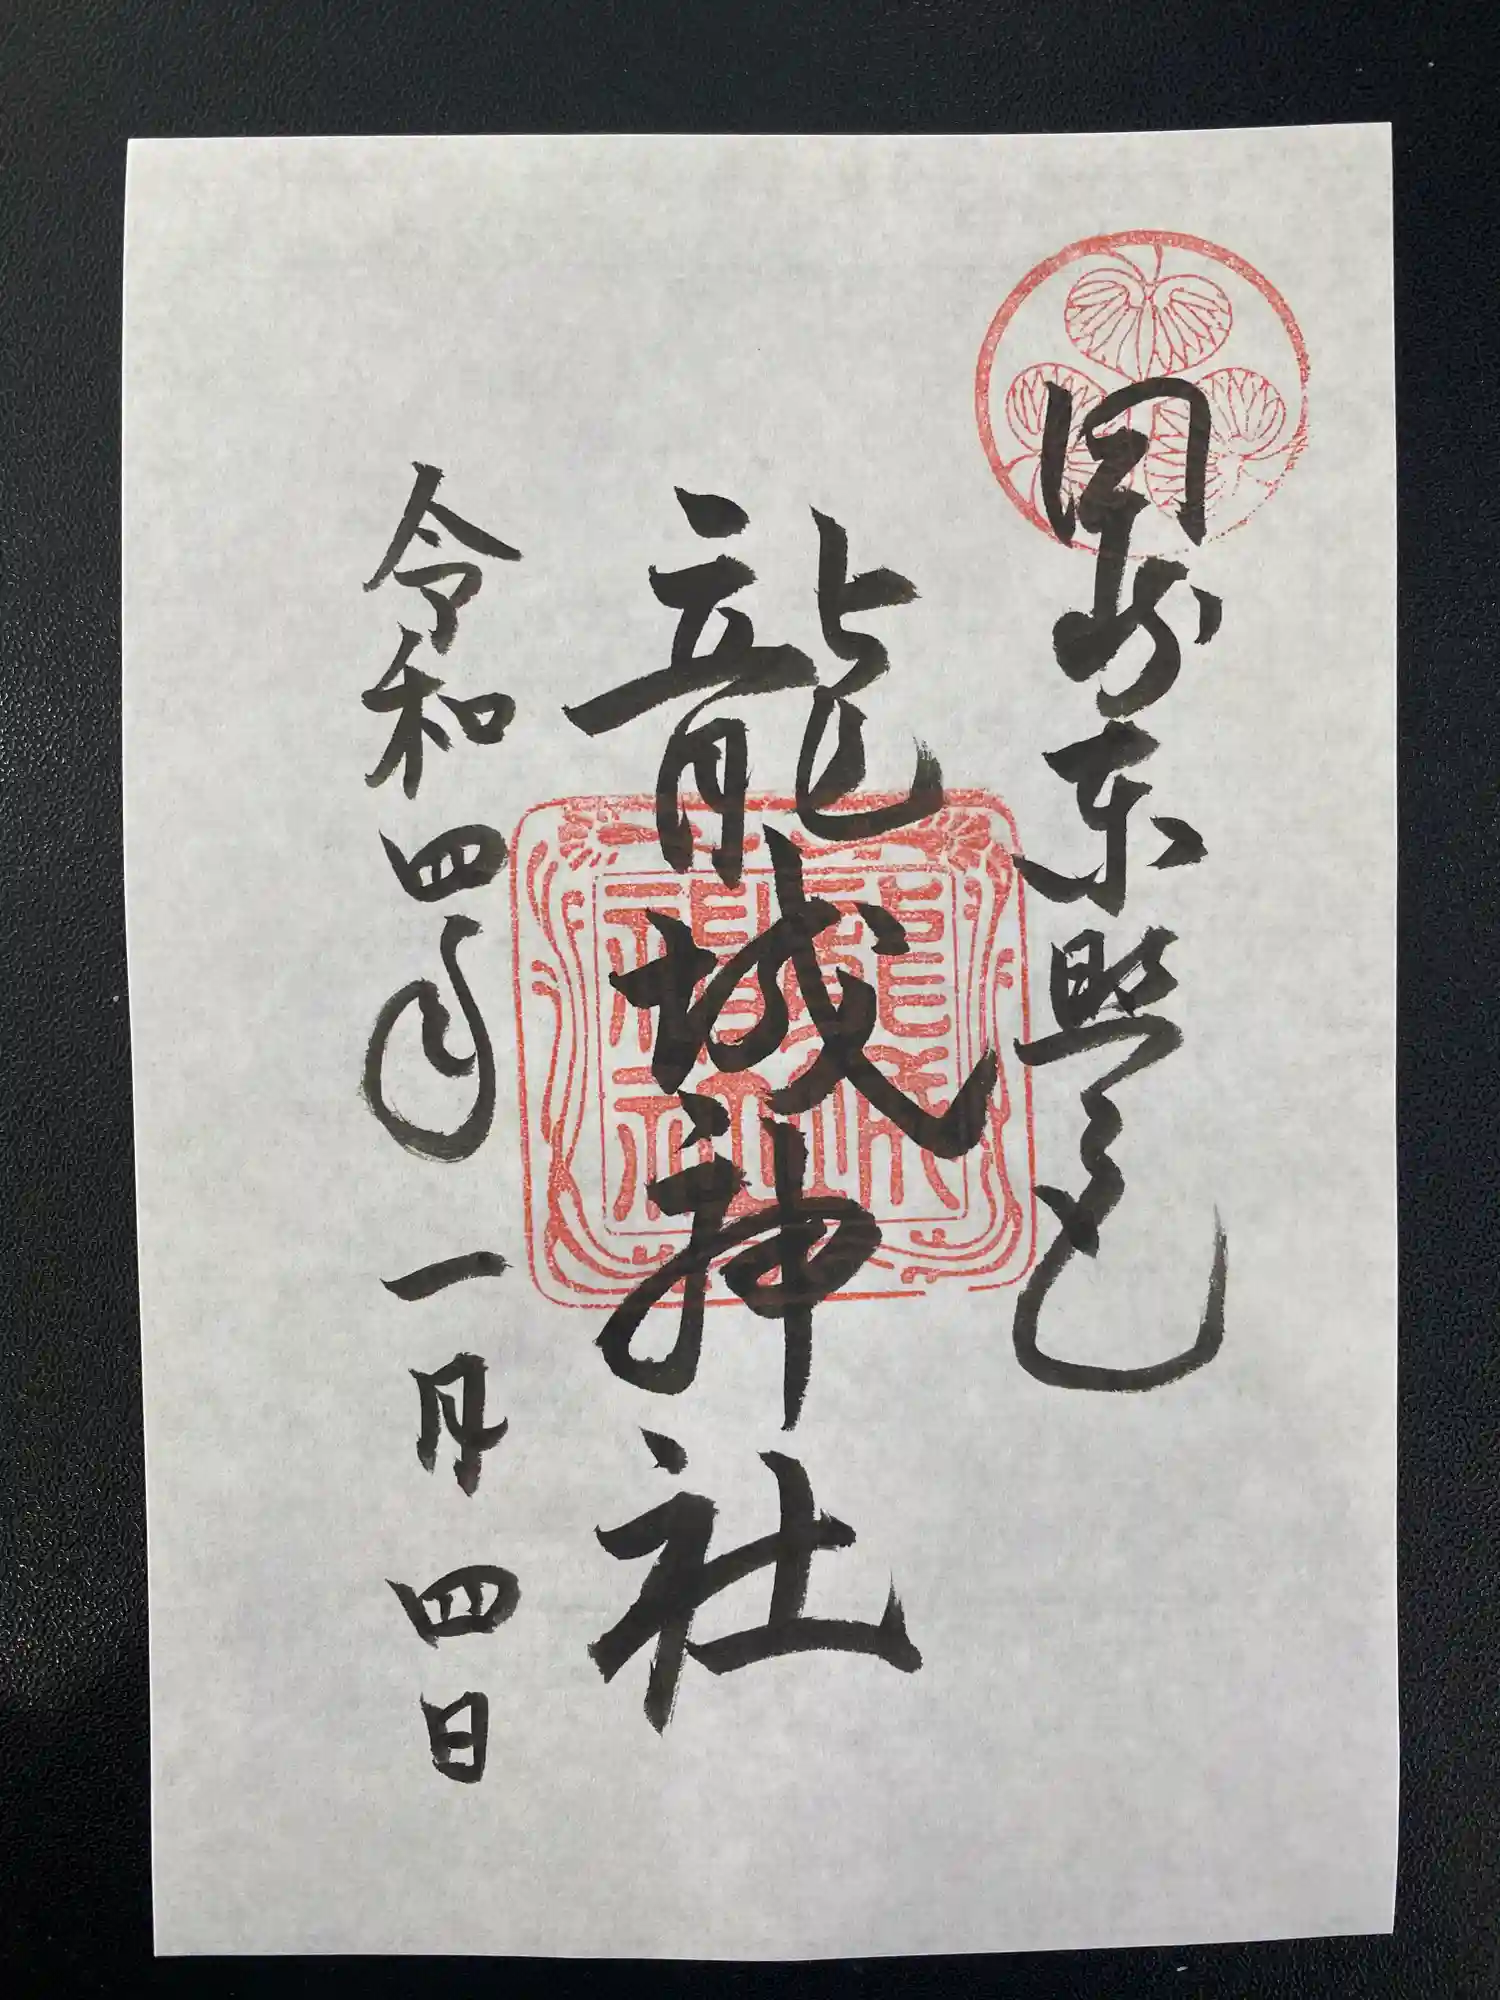 岡崎東照宮
龍城神社
令和四年一月四日
龍城神社